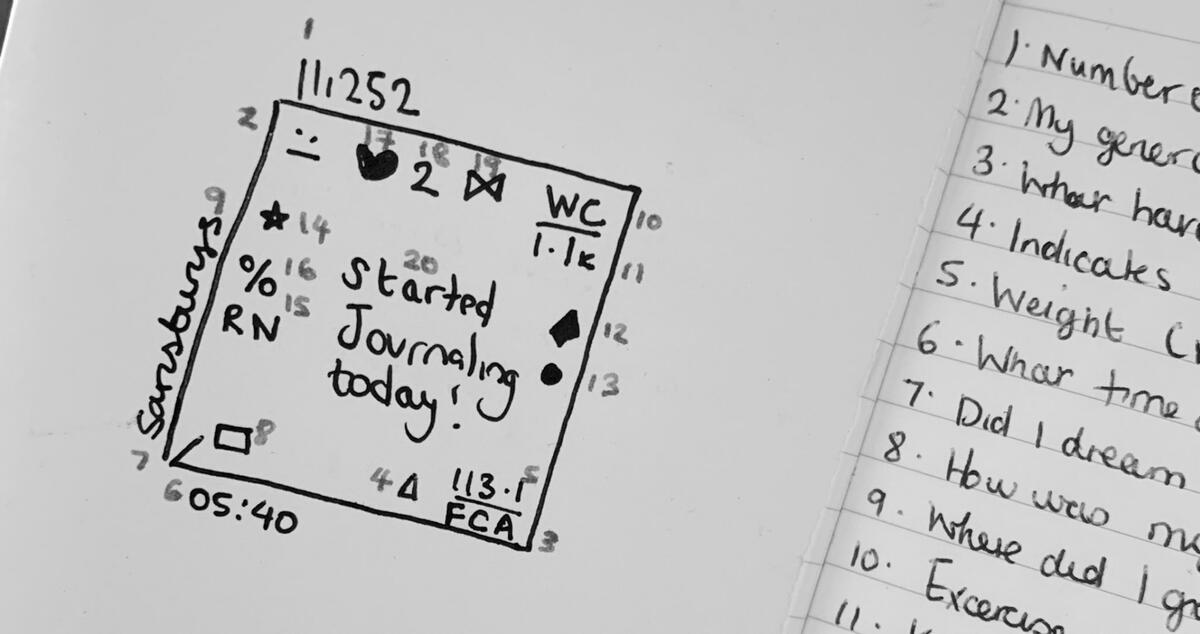 1
11,252
2
17
18
19
2
WC
1.1k
10
9
14
20
11
% 16
Started
RN 15
Journaling
12
today!
13
Sainsburys
8
7
4
113.1
5
FCA
3
6
05:40
1. Number
2. My
3. What
4. Indicates
5. Weight
6. What time
7. Did I dream
8. How was
9. Where did I
10. Excercise
11.